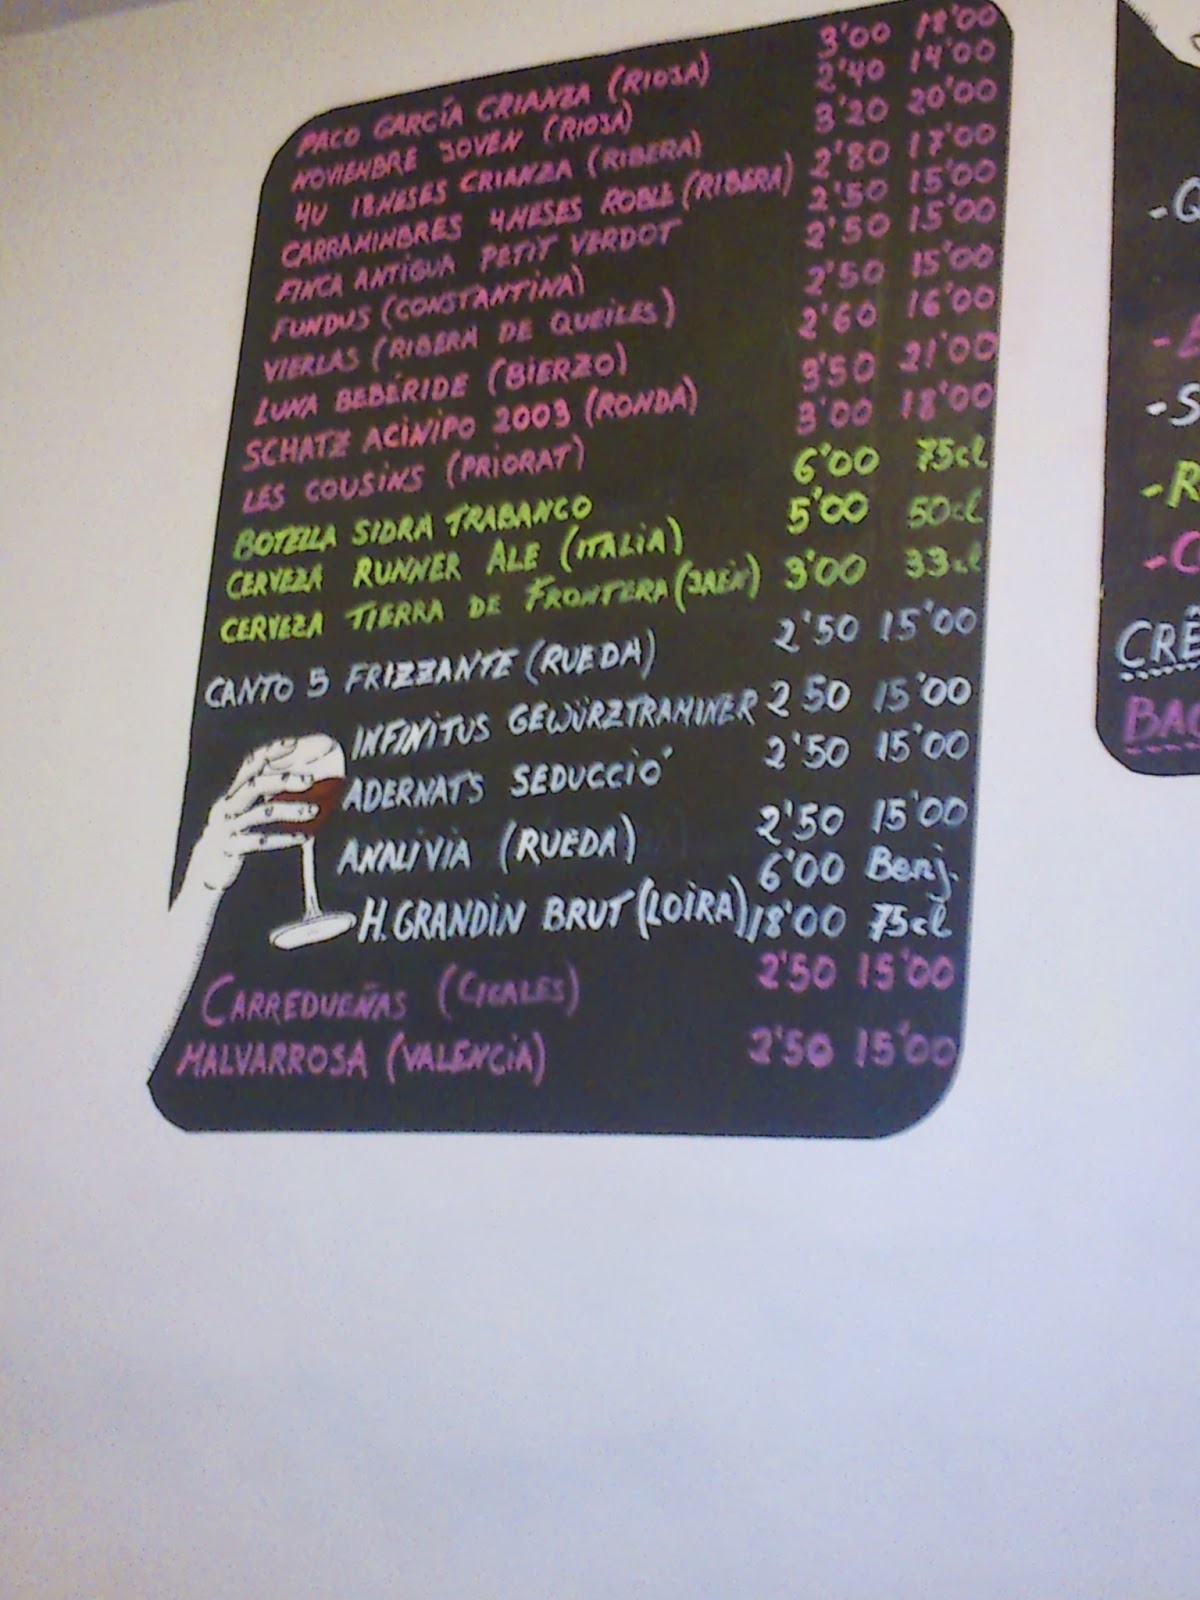 PACO GARCÍA CRIANZA (RIOJA) 3'00 18'00
NOVIEMBRE JOVEN (RIOJA) 2'40 14'00
4U 18MESES CRIANZA (RIBERA) 3'20 20'00
CARRAMIMBRES 4MESES ROBLE (RIBERA) 2'80 17'00
FINCA ANTIGUA PETIT VERDOT 2'50 15'00
FUNDUS (CONSTANTINA) 2'50 15'00
VIERLAS (RIBERA DE QUEILES) 2'50 15'00
LUNA BEBERIDE (BIERZO) 2'60 16'00
SCHATZ ACINIPO 2003 (RONDA) 3'50 21'00
LES COUSINS (PRIORAT) 3'00 18'00
BOTELLA SIDRA TRABANCO 6'00 75cl
CERVEZA RUNNER ALE (ITALIA) 5'00 50cl
CERVEZA TIERRA DE FRONTERA (JAÉN) 3'00 33cl
CANTO 5 FRIZZANTE (RUEDA) 2'50 15'00
INFINITUS GEWÜRZTRAMINER 2'50 15'00
ADERNATS SEDUCCIÓ 2'50 15'00
ANALIVIA (RUEDA) 2'50 15'00
6'00 Benj.
H. GRANDIN BRUT (LOIRA) 18'00 75cl
CARREDUEÑAS (CIGALES) 2'50 15'00
MALVARROSA (VALENCIA) 2'50 15'00
CRÊ